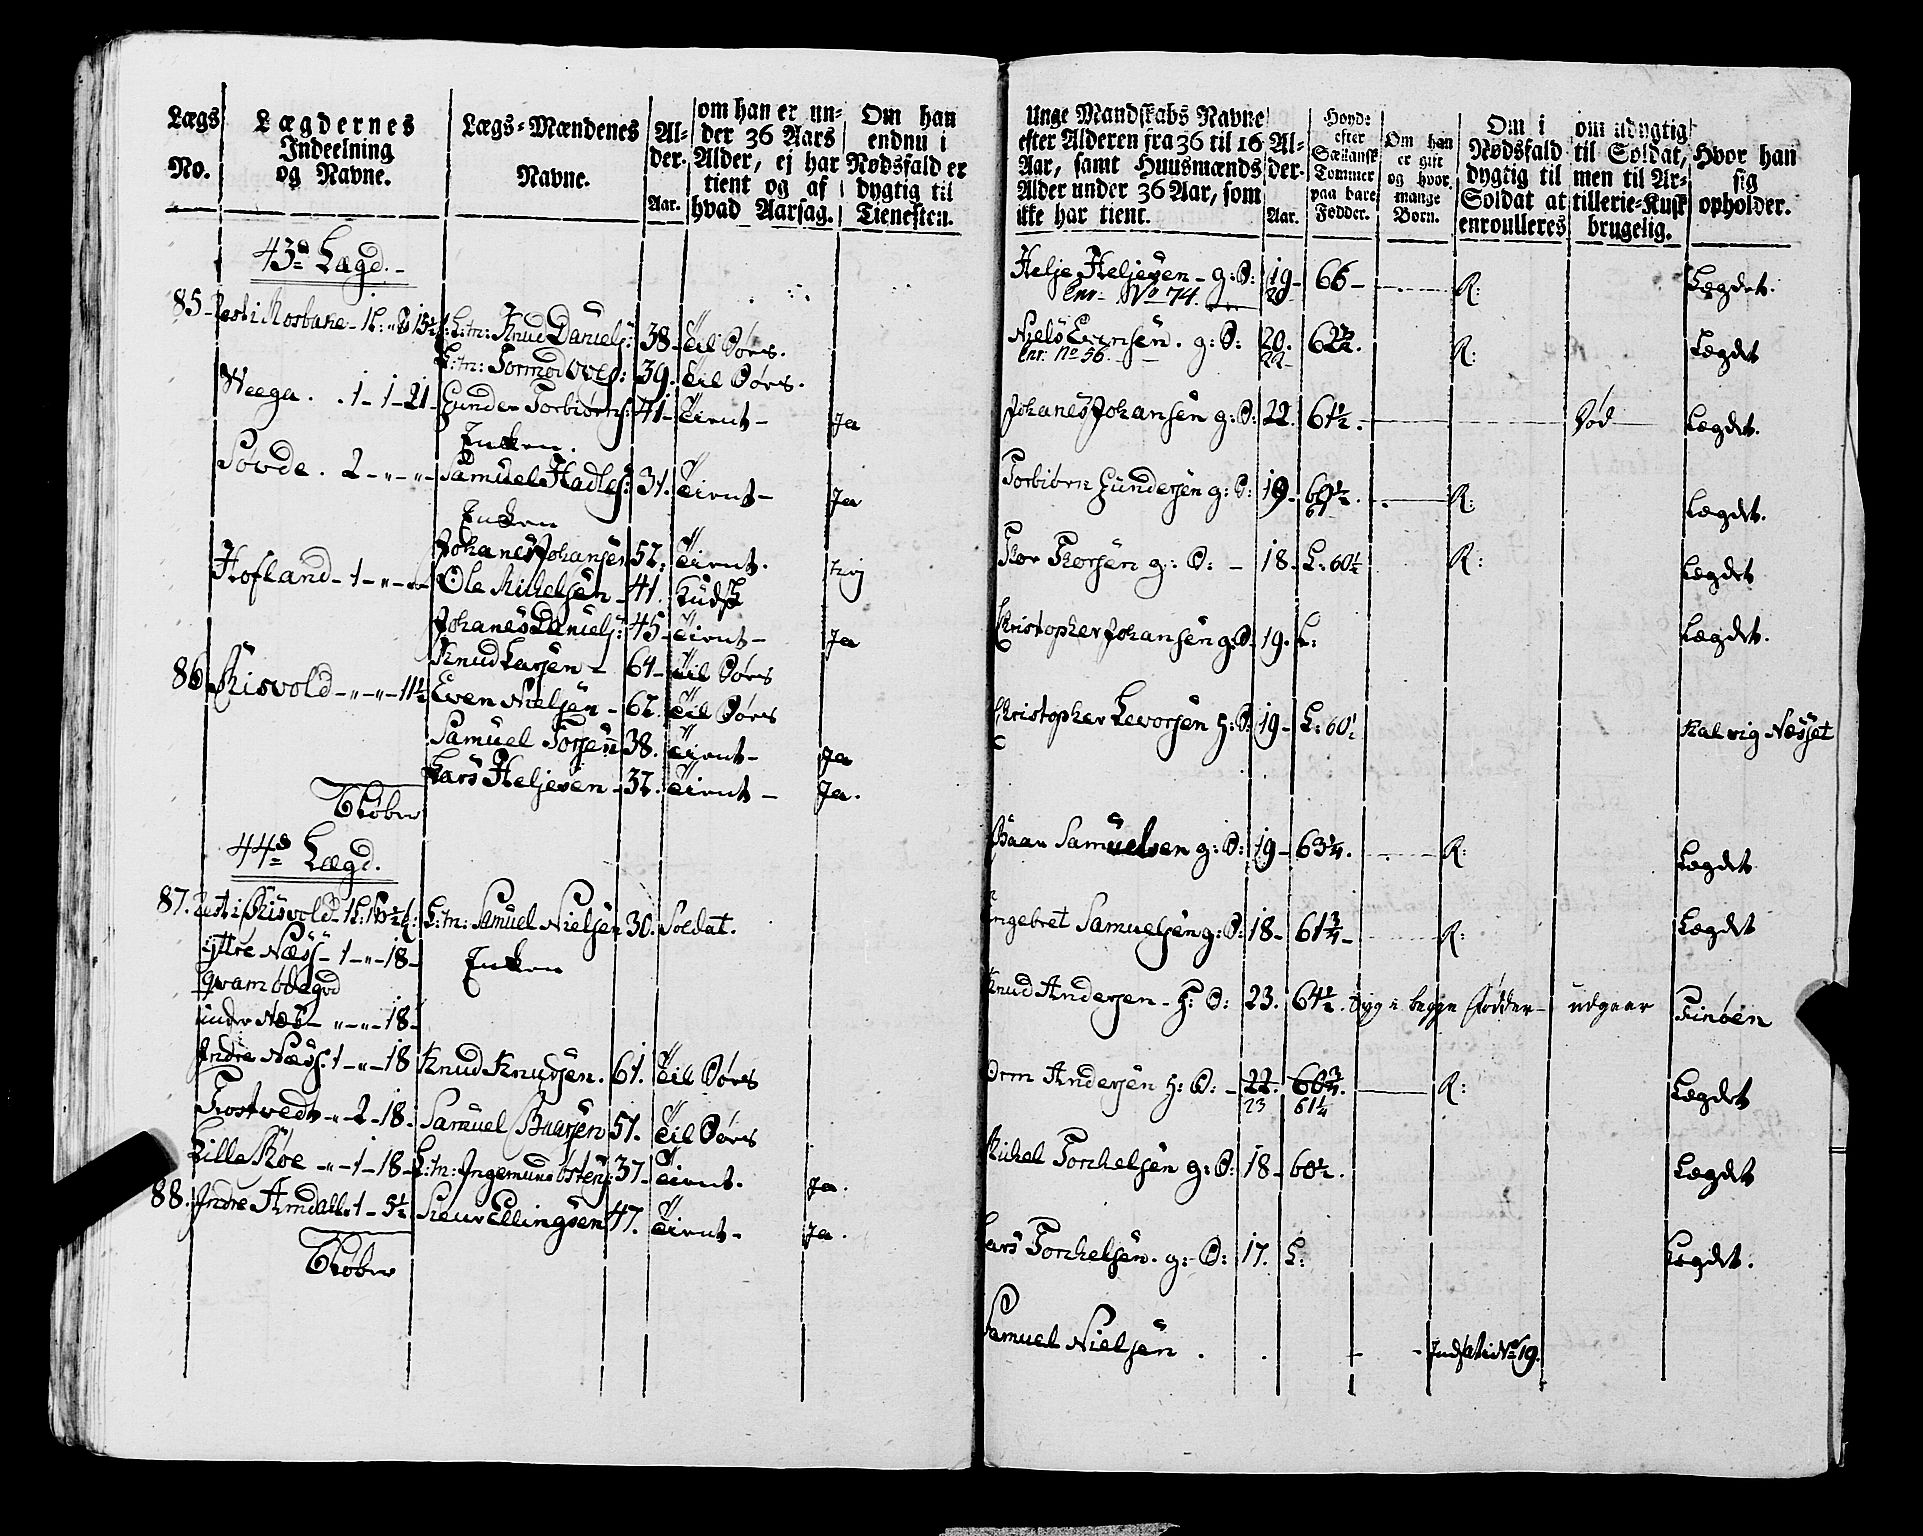 Lægs No.
Lægdernes Indeelning og Navne.
Lægs-Mændenes Navne.
Alder. Aar.
om han er under 36 Aars Alder, ej har tient og af hvad Aarsag.
Om han endnu i Nødsfald er dygtig til Tienesten.
43de Lægd.
85 Rest i Rosbane 1 L:
L:tn: Knud Daniels: 38 til Børs.
L:tn: Tormod Ols: 39. til Børs.
Weega . . 1 - 1 - 21 Gunder Torbiørns: 41 tient Ja
Enken.
Søvde . 2 - " - " Samuel Hadles: 31. tient Ja
Enken
Johanes Johansen 52. tient.
Hofland - 1 - " - " Ole Michelsen 41. Kudsk
Johanes Daniels: 45 tient Ja
Knud Larsen - 64 til Børs
86 Risvold - " - " - 11½ Even Nielsen - 62. til Børs
Samuel Torsen 38. tient Ja
Lars Heljesen - 32. tient - Ja.
44de Lægd.
87. Rest i Risvold L:tn: Samuel Nielsen 30. Soldat.
Yttre Næss - 1 - " - 18 Enken
under Næss - " - " - 18
Indre Næss: 1 - " - 18 Knud Knudsen. 61. til Børs
Tostvedt - " - 2 - 18. Samuel Baarsen 57. til Børs
Lille Bøe - " - 1 - 18 L:tn: Ingemund Østens: 37 tient. Ja.
88. Indre Amdall 1 - 5½ Siewr Ellingsen 47. tient. Ja.
Unge Mandskabs Navne efter Alderen fra 36 til 16 Aar, samt Huusmænds Alder under 36 Aar, som ikke har tient.
Alder. Aar.
Høyde efter Sællansk Tommer paa bare Fødder.
Om han er gift og hvor mange Børn.
Om i Nødsfald dygtig til Soldat at enroulleres
om udygtig til Soldat, men til Artillerie-Kusk brugelig.
Hvor han sig opholder.
Helje Heljesen - g: S: 19 66 R: Lægdet.
Enr. No 74. 20
Niels Evensen. g: S: 20. 62½. R: Lægdet
Enr. No 56. 22
Johanes Johansen g: S: 22. 61½. død Lægdet.
Torbiørn Gundersen g: S: 19 60½. R: Lægdet.
61
Tor Torsen g: S: - 18 L: 60½ R: Lægdet
Christopher Johansen g: S: 19. L: Lægdet.
Christopher Levorsen H: S: 19 L: 60 Kalvig Næsset
Baar Samuelsen g: S: 19 63¼. R: Lægdet
Engebret Samuelsen g: S: 18 61¾ R: Lægdet
Knud Andersen - H: S: 23. 64½. Syg i begge Fødder udgaar Finøen
Orm Andersen H: S: - 22. 60¾. R: Lægdet
23 61¼
Mickel Torchelsen g: S: 18 60½. Lægdet
Lars Torchelsen. g: S: 17. L: Lægdet.
Samuel Nielsen . Indsat i No 19.